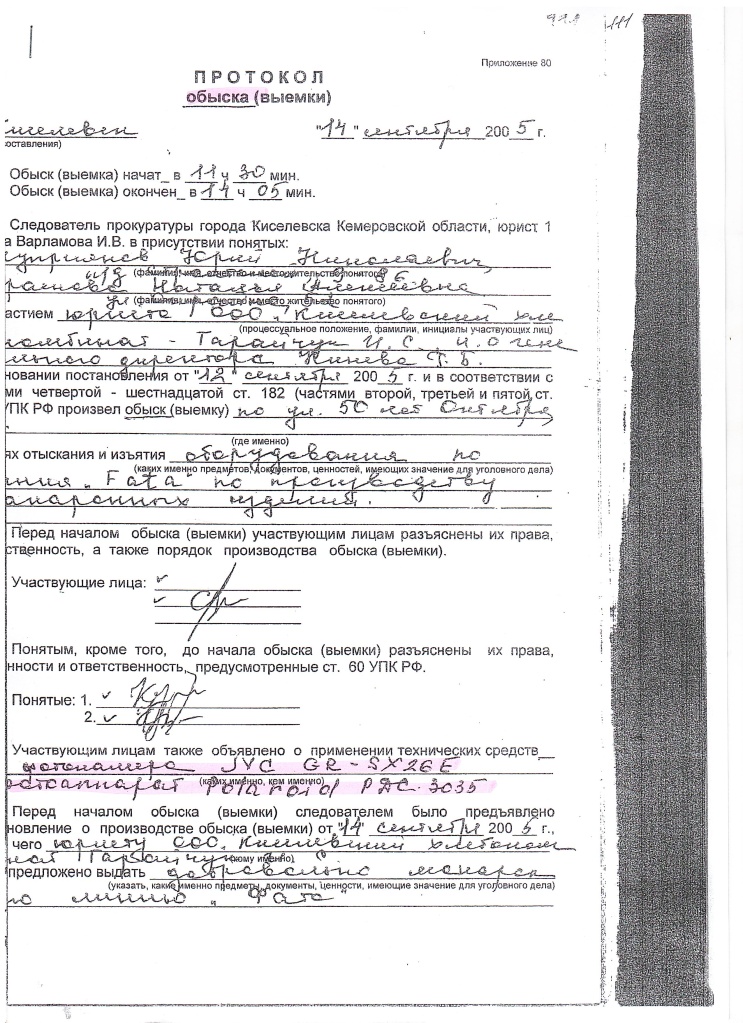 111
Приложение 80
ПРОТОКОЛ
обыска (выемки)
"14" сентября 2005 г.
оставления)
Обыск (выемка) начат_ в 11 ч 30 мин.
Обыск (выемка) окончен_ в 14 ч 05 мин.
Следователь прокуратуры города Киселевска Кемеровской области, юрист 1
а Варламова И.В. в присутствии понятых:
Юрий Николаевич,
(фамилия, имя, отчество и местожительство понятого)
Наталья Алексеевна
(фамилия, имя, отчество и место жительство понятого)
астием юриста ООО "Киселевский хле
(процессуальное положение, фамилии, инициалы участвующих лиц)
комбинат - Тарайчук И.С., и.о гене
льного директора Кинева Г.Б.
новании постановления от "12" сентября 2005 г. и в соответствии с
ми четвертой - шестнадцатой ст. 182 (частями второй, третьей и пятой ст.
УПК РФ произвел обыск (выемку) по ул. 50 лет Октября,
(где именно)
ях отыскания и изъятия оборудования по
(каких именно предметов, документов, ценностей, имеющих значение для уголовного дела)
ния "Fata" по производству
макаронных изделий.
Перед началом обыска (выемки) участвующим лицам разъяснены их права,
ственность, а также порядок производства обыска (выемки).
Участвующие лица:
Понятым, кроме того, до начала обыска (выемки) разъяснены их права,
нности и ответственность, предусмотренные ст. 60 УПК РФ.
Понятые: 1.
2.
Участвующим лицам также объявлено о применении технических средств
фотокамера JVC GR-SX26E
(каких именно, кем именно)
отоаппарат Polaroid PDC 3035
Перед началом обыска (выемки) следователем было предъявлено
новление о производстве обыска (выемки) от "14" сентября 2005 г.,
чего юристу ООО "Киселевский хлебоком
нат Тарайчук И.С.
(кому именно)
предложено выдать добровольно макарон
(указать, какие именно предметы, документы, ценности, имеющие значение для уголовного дела)
ую линию "Фата"